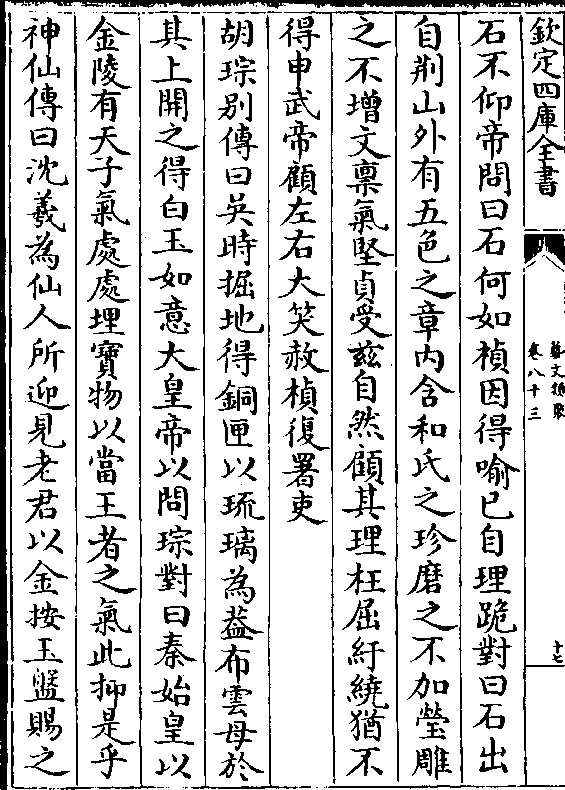 欽定四庫全書
藝文類聚
卷八十三
十七
石不仰帝問曰石何如楨因得喻已自理跪對曰石出
自荆山外有五色之章内含和氏之珍磨之不加瑩雕
之不增文禀氣堅貞受兹自然顧其理枉屈紆繞猶不
得申武帝顧左右大笑赦楨復署吏
胡琮别傳曰吴時掘地得銅匣以琉璃為葢布雲母於
其上開之得白玉如意大皇帝以問琮對曰秦始皇以
金陵有天子氣處處埋寶物以當王者之氣此抑是乎
神仙傳曰沈羲為仙人所迎見老君以金按玉盤賜之